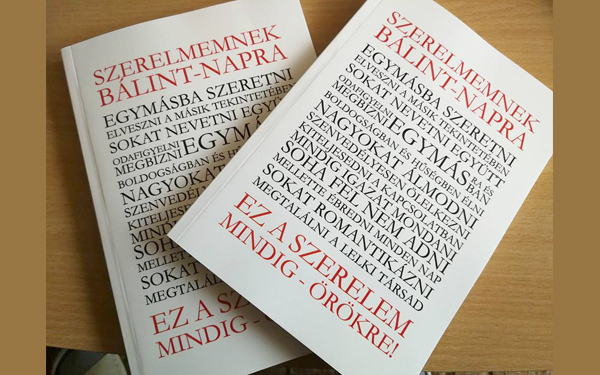 SZERELMEMNEK
BÁLINT-NAPRA
EGYMÁSBA SZERETNI
ELVESZNI A MÁSIK TEKINTETÉBEN
SOKAT NEVETNI EGYÜ
ODAFIGYELNI
MEGBÍZNI EGYM
BOLDOGSÁGBAN ÉS H
NAGYOKAT
SZENVEDÉL
KITELJES
MIND
SOH
MELLETTE
SOKAT
MEGTALÁL
EZ A SZ
MINDIG -
SZERELMEMNEK
BÁLINT-NAPRA
EGYMÁSBA SZERETNI
ELVESZNI A MÁSIK TEKINTETÉBEN
SOKAT NEVETNI EGYÜTT
ODAFIGYELNI EGYMÁS RA ÉS
MEGBÍZNI BAN
BOLDOGSÁGBAN ÉS HŰSÉGBEN ÉLNI
NAGYOKAT ÁLMODNI
SZENVEDÉLYESEN ÖLELKEZNI
KITELJESEDNI A KAPCSOLATBAN
MINDIG IGAZAT MONDANI
SOHA FEL NEM ADNI
MELLETTE ÉBREDNI MINDEN NAP
SOKAT ROMANTIKÁZNI
MEGTALÁLNI A LELKI TÁRSAD
EZ A SZERELEM
MINDIG - ÖRÖKRE!